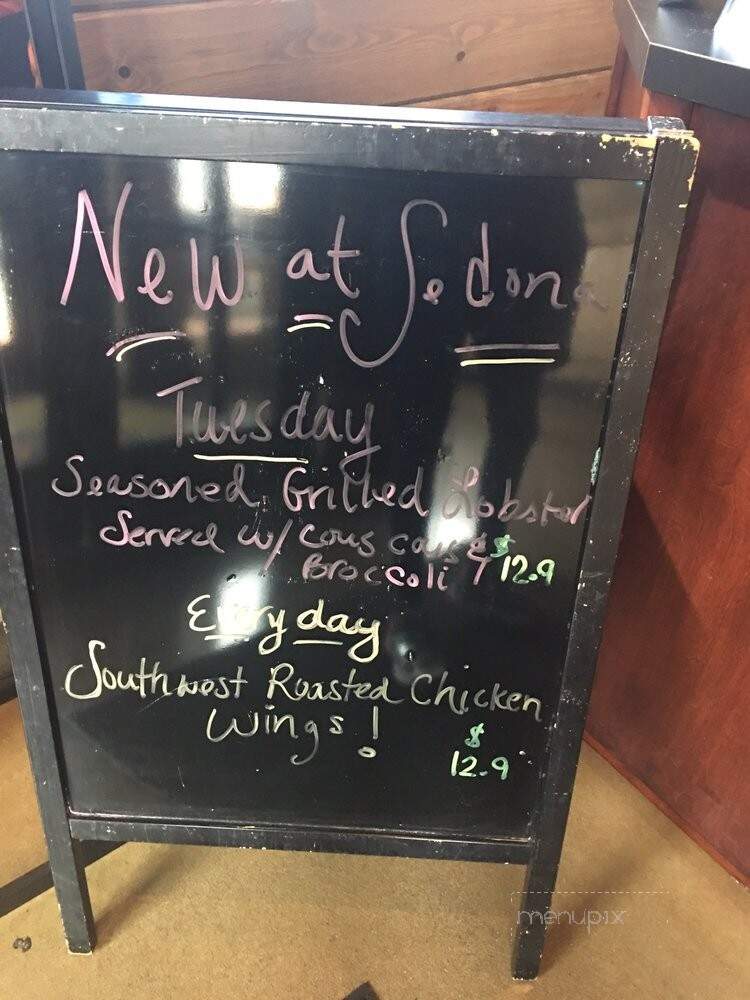 New at Sedona
Tuesday
Seasoned Grilled Lobster
Served w/ Cous cous &
Broccoli $12.9
Everyday
Southwest Roasted Chicken
Wings! $
12.9
menupix